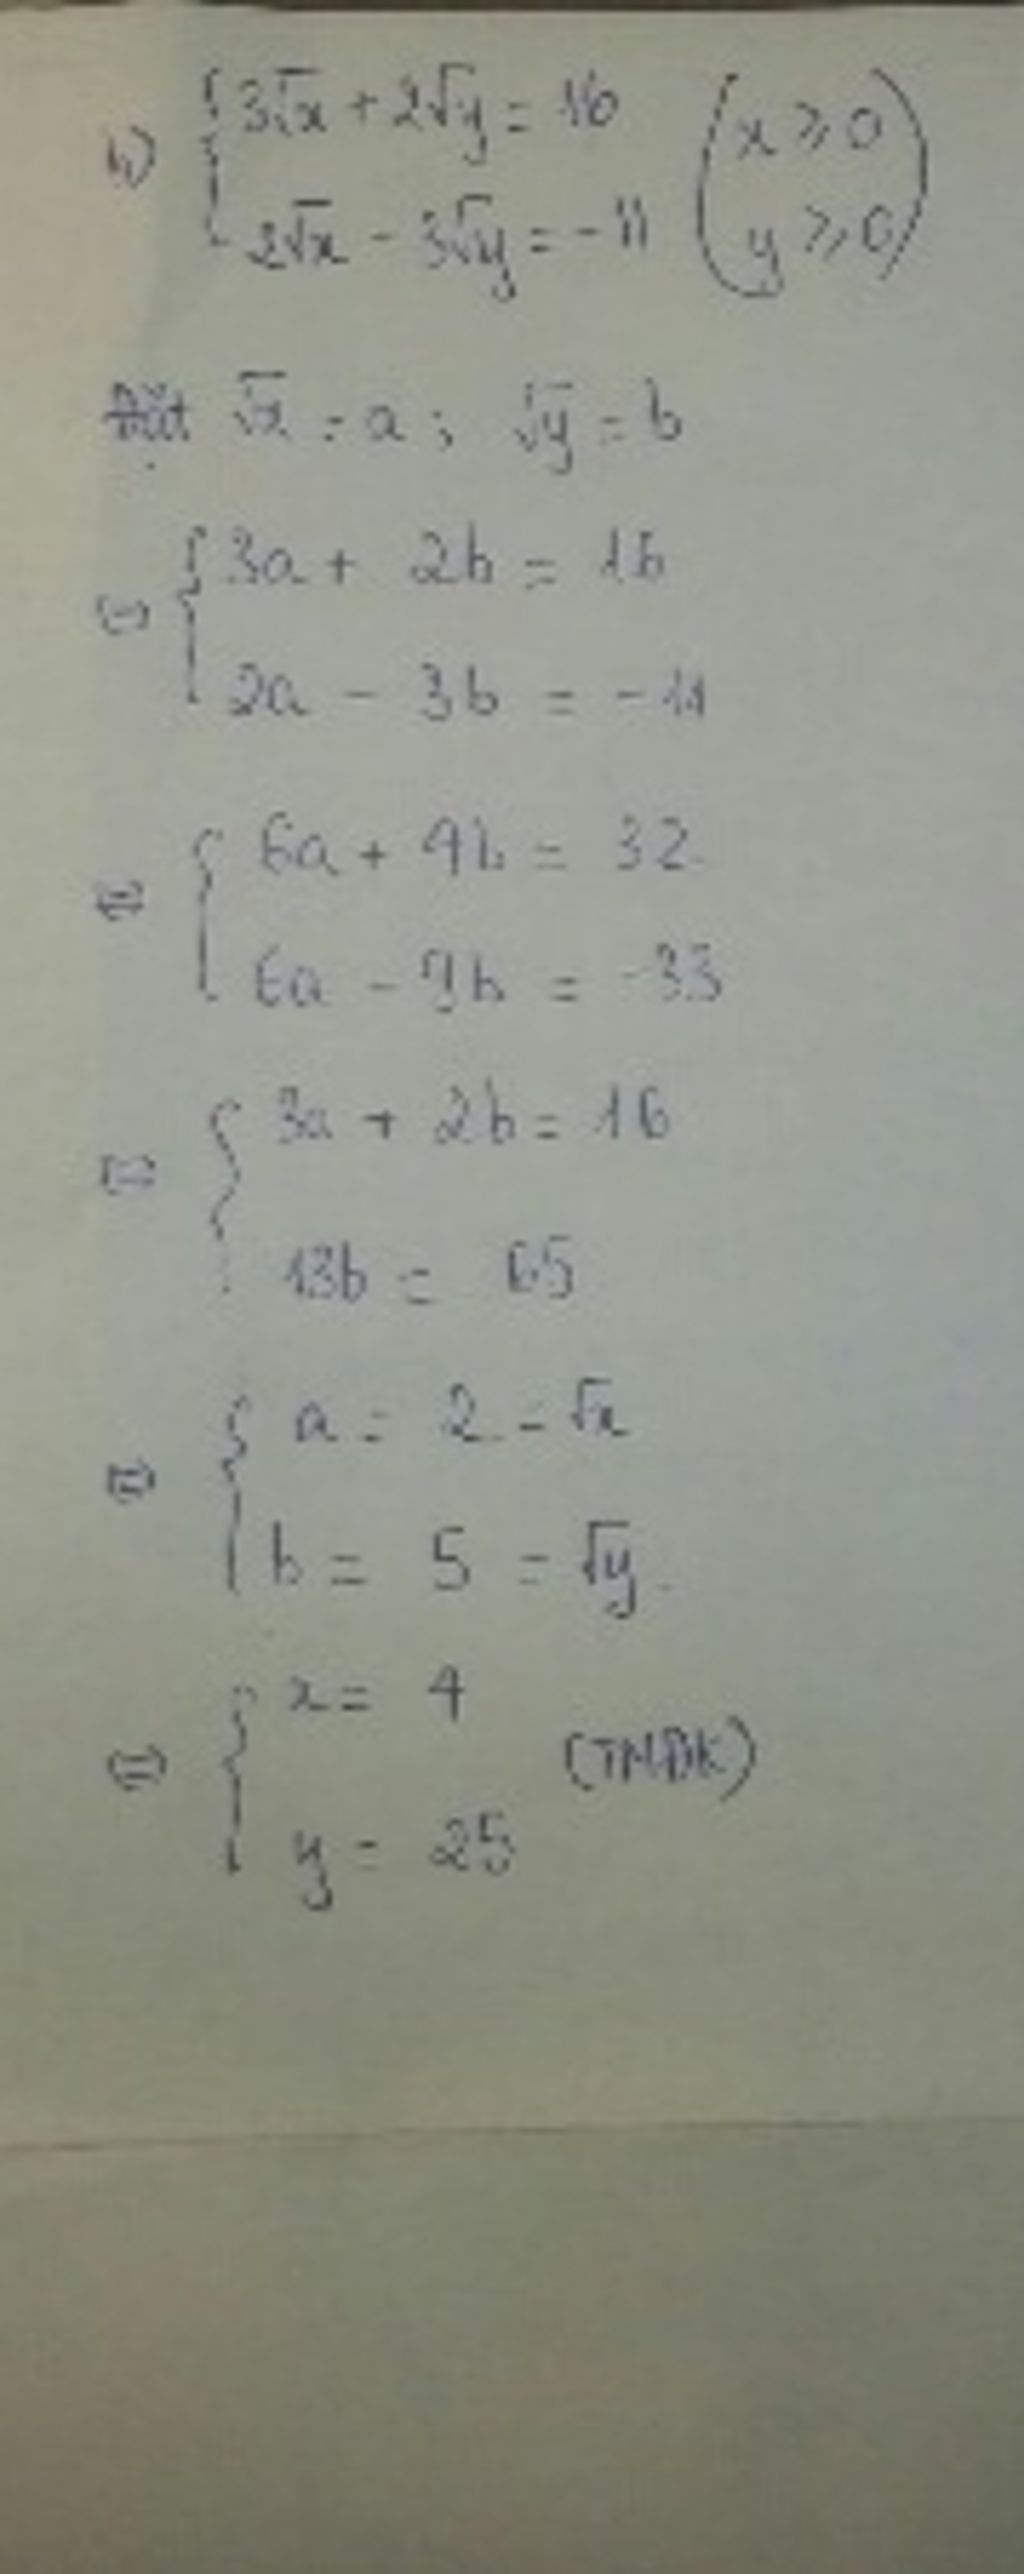 b) { 3√x + 2√y = 16
2√x - 3√y = -11
( x ⩾ 0
y ⩾ 0 )
Đặt √x = a ; √y = b
(=) { 3a + 2b = 16
2a - 3b = -11
(=) { 6a + 4b = 32
6a - 9b = -33
(=) { 3a + 2b = 16
13b = 65
(=) { a = 2 = √x
b = 5 = √y
(=) { x = 4
y = 25
(TMĐK)